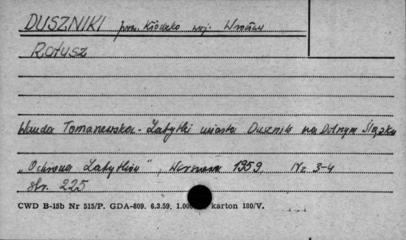 DUSZNIKI pow. Kłodzko woj. Wrocław
Ratusz
Wanda Tomaszewska - Zabytki miasta Dusznik na Dolnym Śląsku
„Ochrona Zabytków", Warszawa 1959. Nr 3-4
str. 225
CWD B-15b Nr 515/P. GDA-809. 6.3.59. 1.00 karton 180/V.